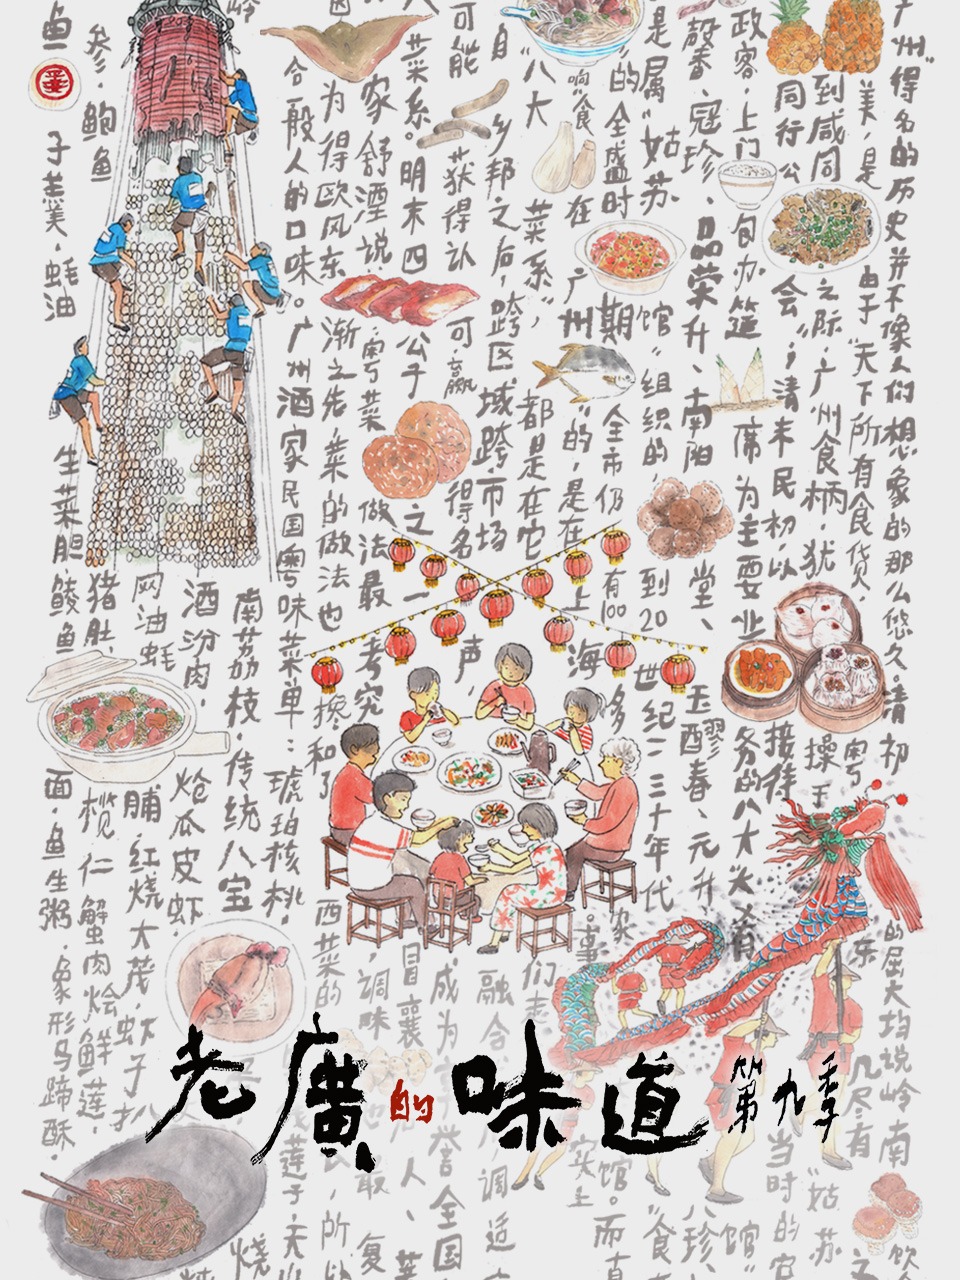 广州"得名的历史并不像人们想象的那么悠久。清初
的屈大均说岭南
美,是由于"天下所有食货,粤东
几尽有
到咸同之际,广州食柄,犹操于
"姑苏
同行公会";清末民初,以接待
当时的官
政客,上门包办筵席为主要业务的八大"大肴
馆"
馨、冠珍、品荣升、南阳堂、玉醪春、元升
八珍、
是属"姑苏馆"组织的,到20世纪二三十年代
"食
的全盛时期"全市仍有100多家。
馆。而真
响"食在广州"的,是在上海。事
实上
"八大菜系",都是在它们走
自乡邦之后,跨区域跨市场
融合
调适
可能获得认可,赢得名声,
成为享誉全国
菜系。明末四公子之一
冒襄
人、菜
家舒湮说,粤菜做法最考究
,调味
最复
为得欧风东渐之先,菜的做法也搀和了
西菜的
,所
合一般人的口味。广州酒家民国粤味菜单:琥珀核桃,
莲子
南荔枝,传统八宝
烧
酒汾肉,炝瓜皮虾,
网油蚝脯,红烧大茂,虾子扒
参,鲍鱼
猪肚,榄仁蟹肉烩鲜莲,
鱼
子羔美,蚝油生菜胆鲮鱼面,鱼生粥,象形马蹄酥,
老廣的味道 第九季